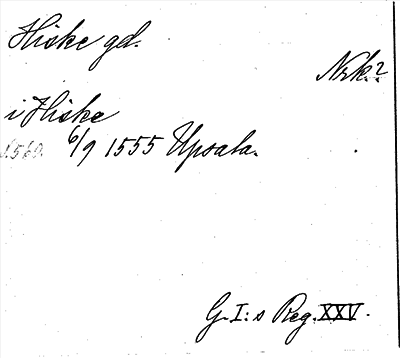 Hiske gd.
Nrk?
i Hiske
1560. 6/9 1555 Upsala.
G. I:s Reg. XXV.